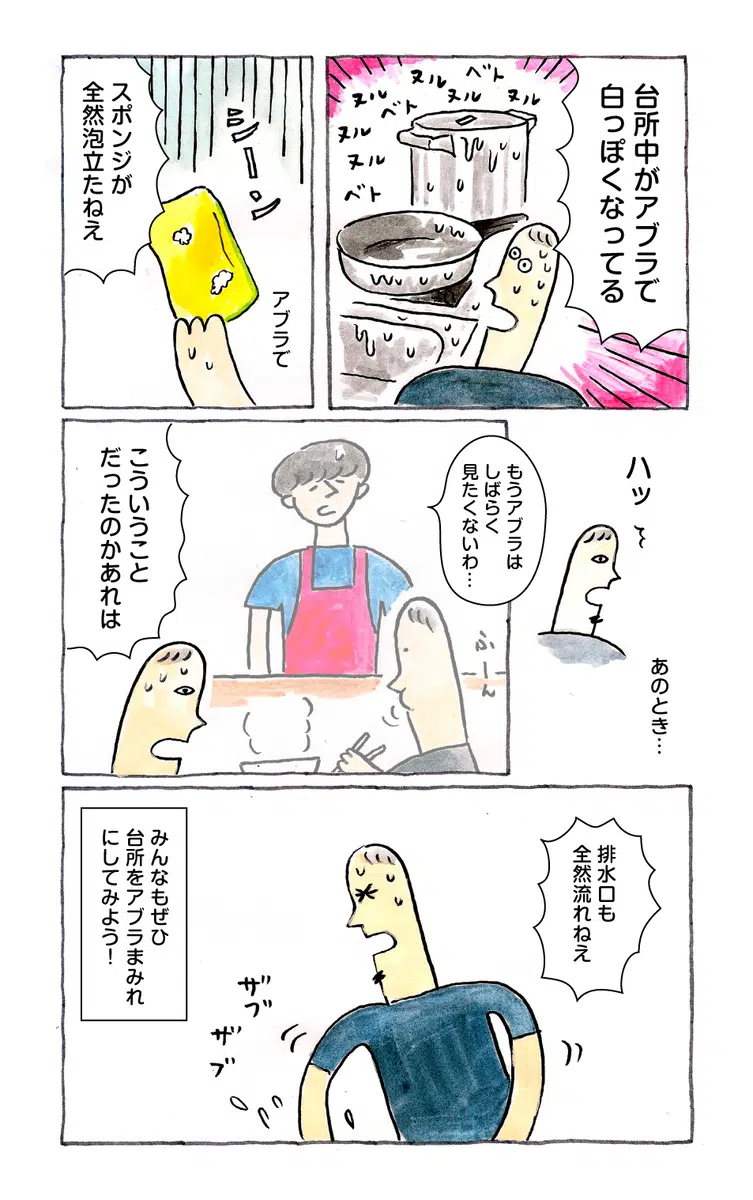 台所中がアブラで
白っぽくなってる
ベト
ヌル
ヌル
ヌル
ヌル
ベト
ヌル
ヌル
ベト
スポンジが
全然泡立たねえ
シーン
アブラで
ハッ
あのとき…
もうアブラは
しばらく
見たくないわ…
ふーん
こういうこと
だったのかあれは
排水口も
全然流れねえ
ザブ
ザブ
みんなもぜひ
台所をアブラまみれ
にしてみよう！